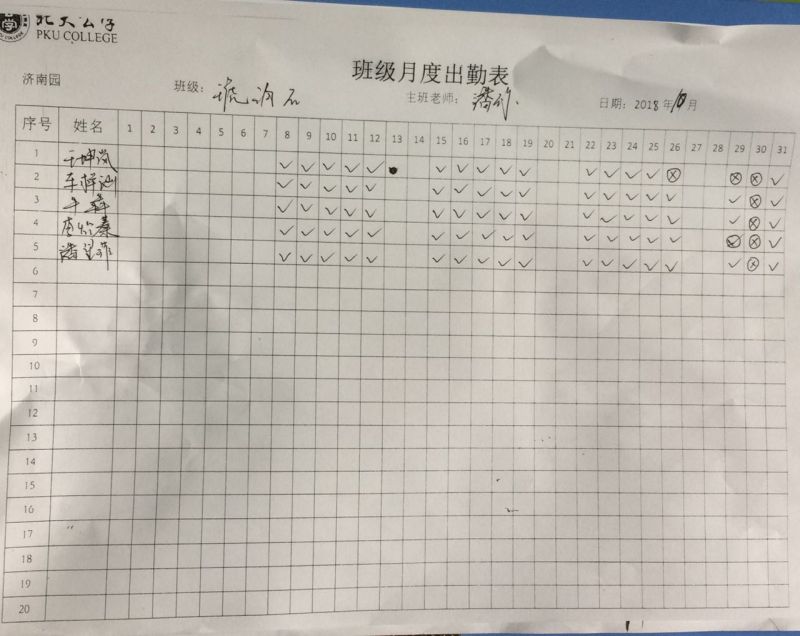 北大公学
PKU COLLEGE
班级月度出勤表
济南园 班级: 主班老师: 日期: 2018年10月
序号 姓名 1 2 3 4 5 6 7 8 9 10 11 12 13 14 15 16 17 18 19 20 21 22 23 24 25 26 27 28 29 30 31
1
2
3
4
5
6
7
8
9
10
11
12
13
14
15
16
17
18
19
20